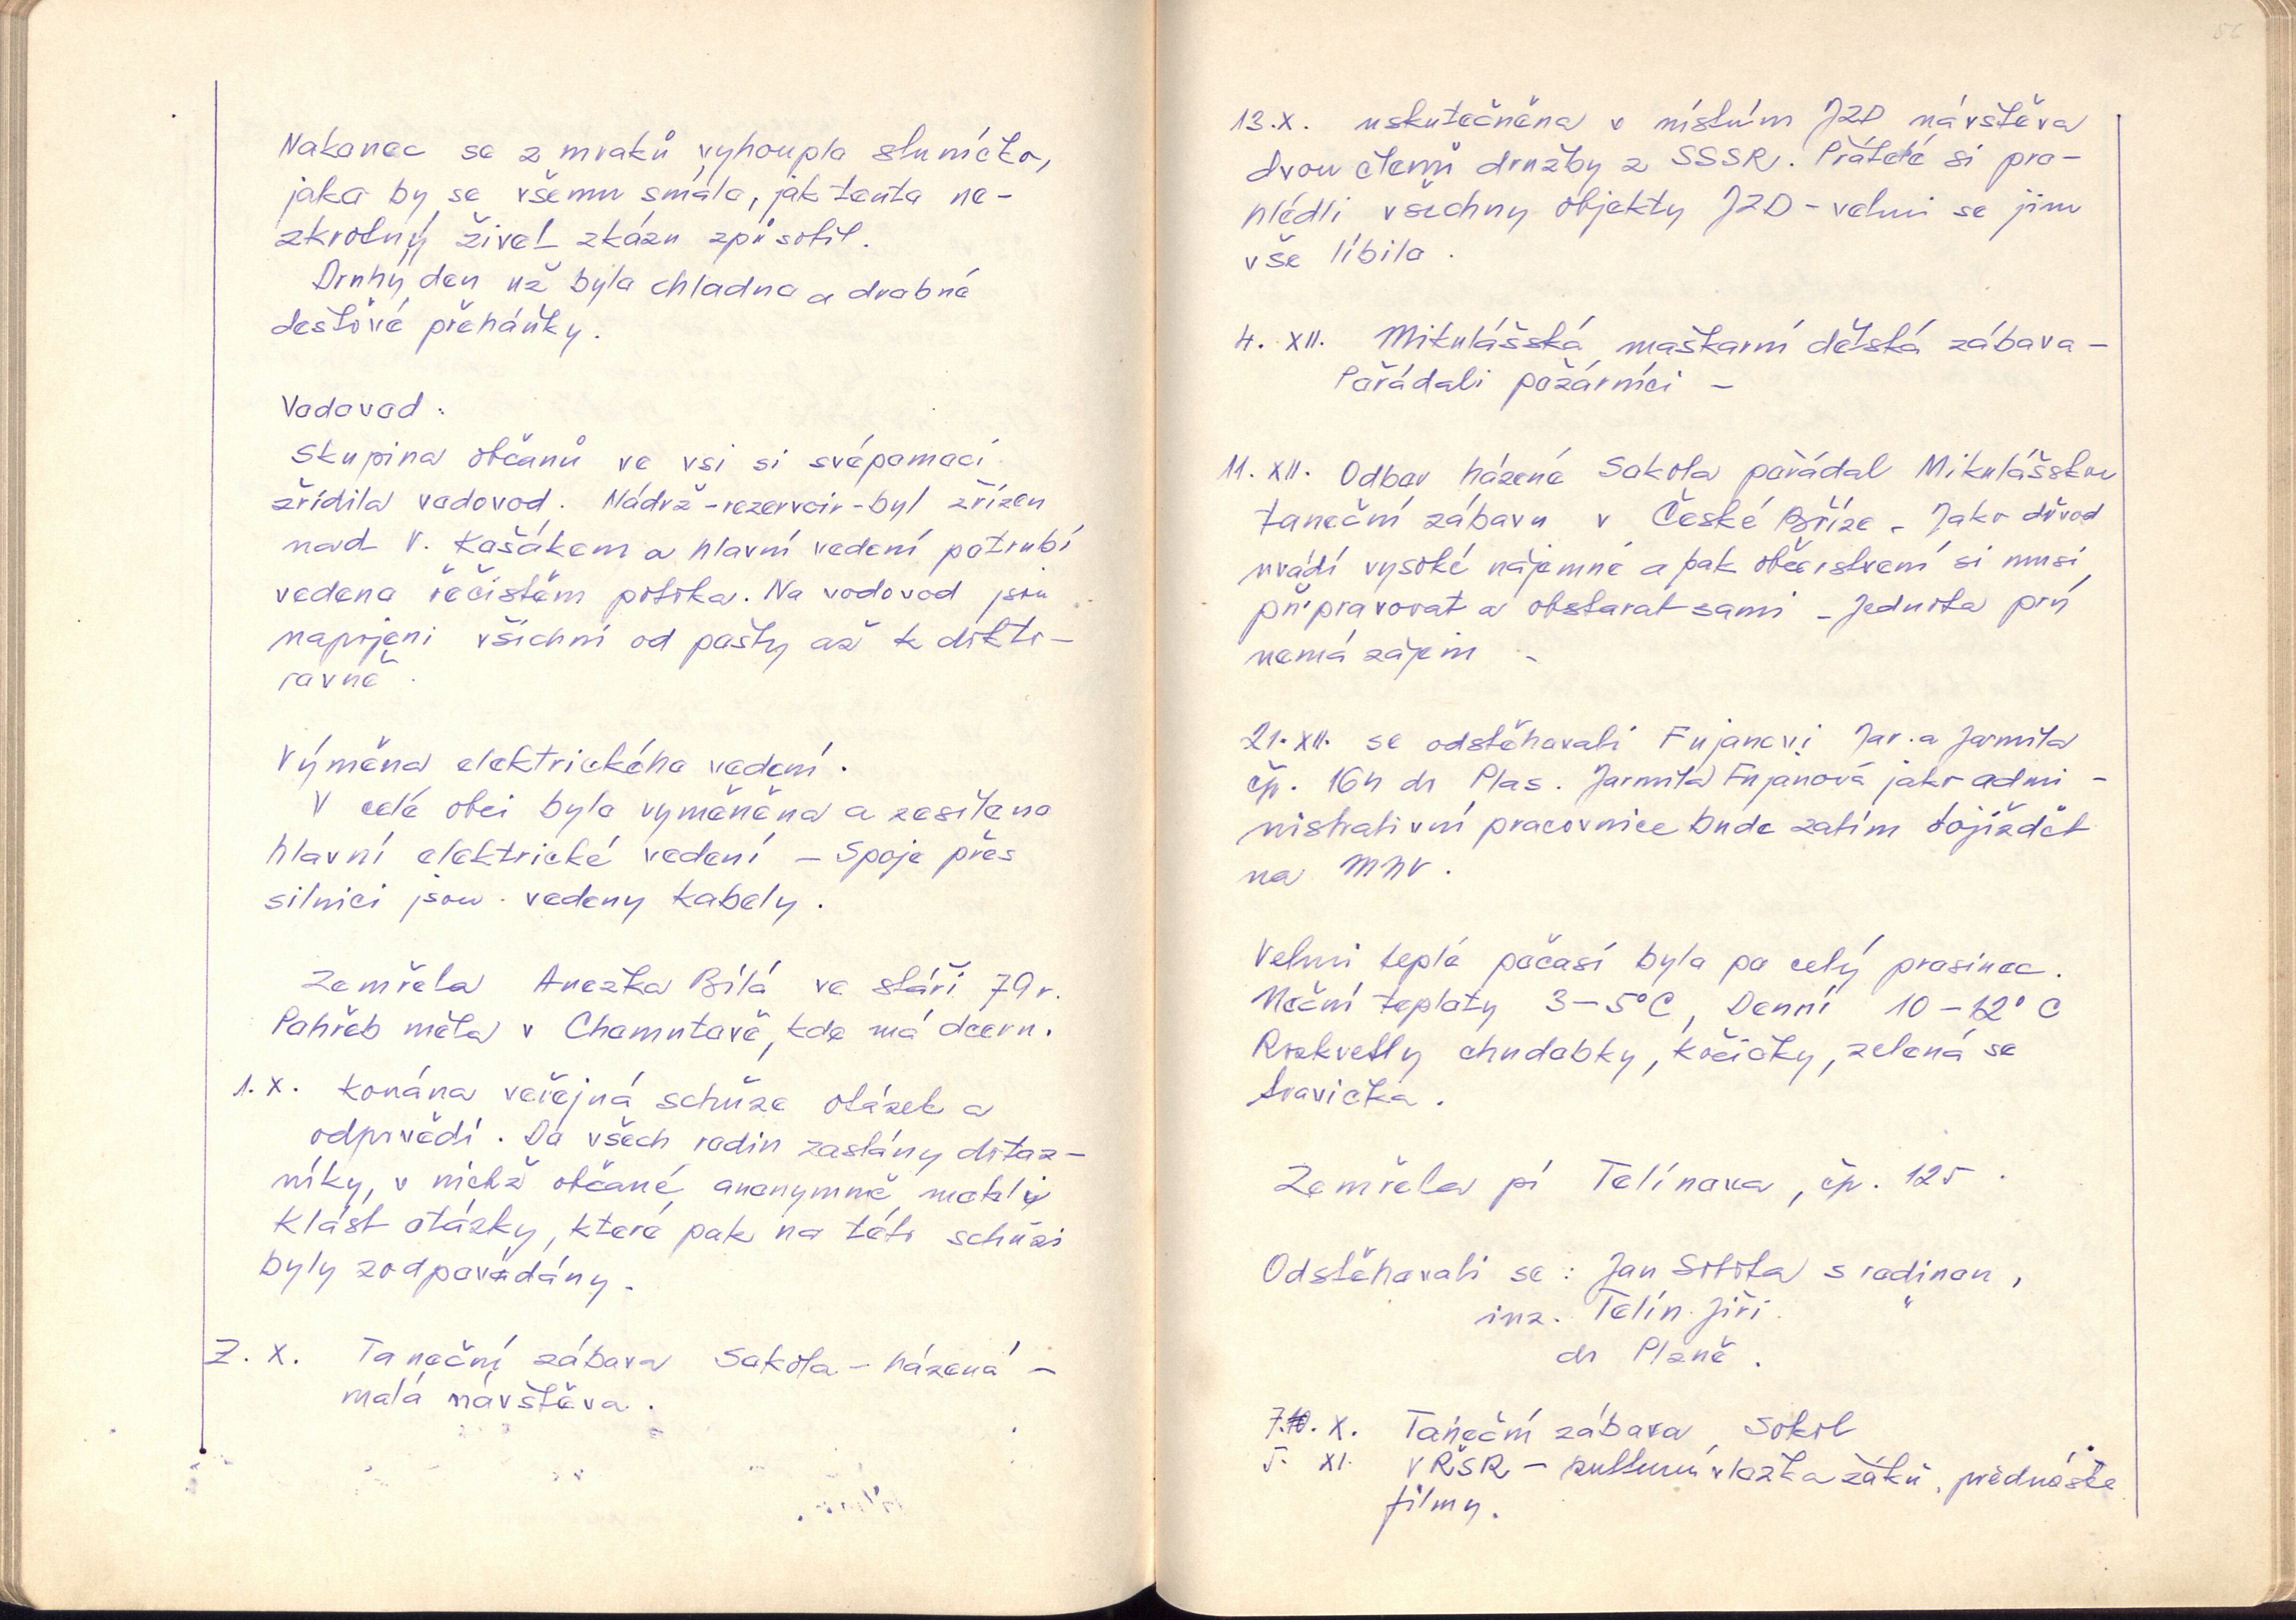 Nakonec se z mraků vyhouplo sluníčko,
jako by se všemu smálo, jak tento ne-
zkrotný živel zkázu způsobil.
Druhý den už bylo chladno a drobné
dešťové přeháňky.
Vodovod:
Skupina občanů ve vsi si svépomocí
zřídila vodovod. Nádrž-rezervoir-byl zřízen
nad V. Košákem a hlavní vedení potrubí
vedeno řečištěm potoka. Na vodovod jsou
napojeni všichni od pošty až k dokto-
rovně.
Výměna elektrického vedení.
V celé obci bylo vyměněno a zesíleno
hlavní elektrické vedení – Spoje přes
silnici jsou vedeny kabely.
Zemřela Anežka Bílá ve stáří 79 r.
Pohřeb měla v Chomutově, kde má dceru.
1. X. Konána veřejná schůze otázek a
odpovědí. Do všech rodin zaslány dotaz-
níky, v nichž občané anonymně mohli
klást otázky, které pak na této schůzi
byly zodpovídány.
2. X. Taneční zábava Sokola – házená –
malá návštěva.
13. X. uskutečněna v místním JZD návštěva
dvou členů družby z SSSR. Přátelé si pro-
hlédli všechny objekty JZD – velmi se jim
vše líbilo.
4. XII. Mikulášská maškarní dětská zábava –
Pořádali požárníci –
11. XII. Odbor házené Sokola pořádal Mikulášskou
taneční zábavu v České Bříze. Jako důvod
uvádí vysoké nájemné a pak občerstvení si musí
připravovat a obstarat sami – Jednota prý
nemá zájem –
21. XII. se odstěhovali Fujanovi Jar. a Jarmila
čp. 164 do Plas. Jarmila Fujanová jako admi-
nistrativní pracovnice bude zatím dojíždět
na MNV.
Velmi teplé počasí bylo po celý prosinec.
Noční teploty 3–5°C, Denní 10–12°C
Rozkvetly chudobky, kočičky, zelená se
travička.
Zemřela pí Telínova, čp. 125.
Odstěhovali se: Jan Sobota s rodinou,
inz. Telín Jiří "
do Plzně.
7. X. Taneční zábava Sokol
5. XI. VŘSR – kulturní vložka žáků, přednáška
filmy.